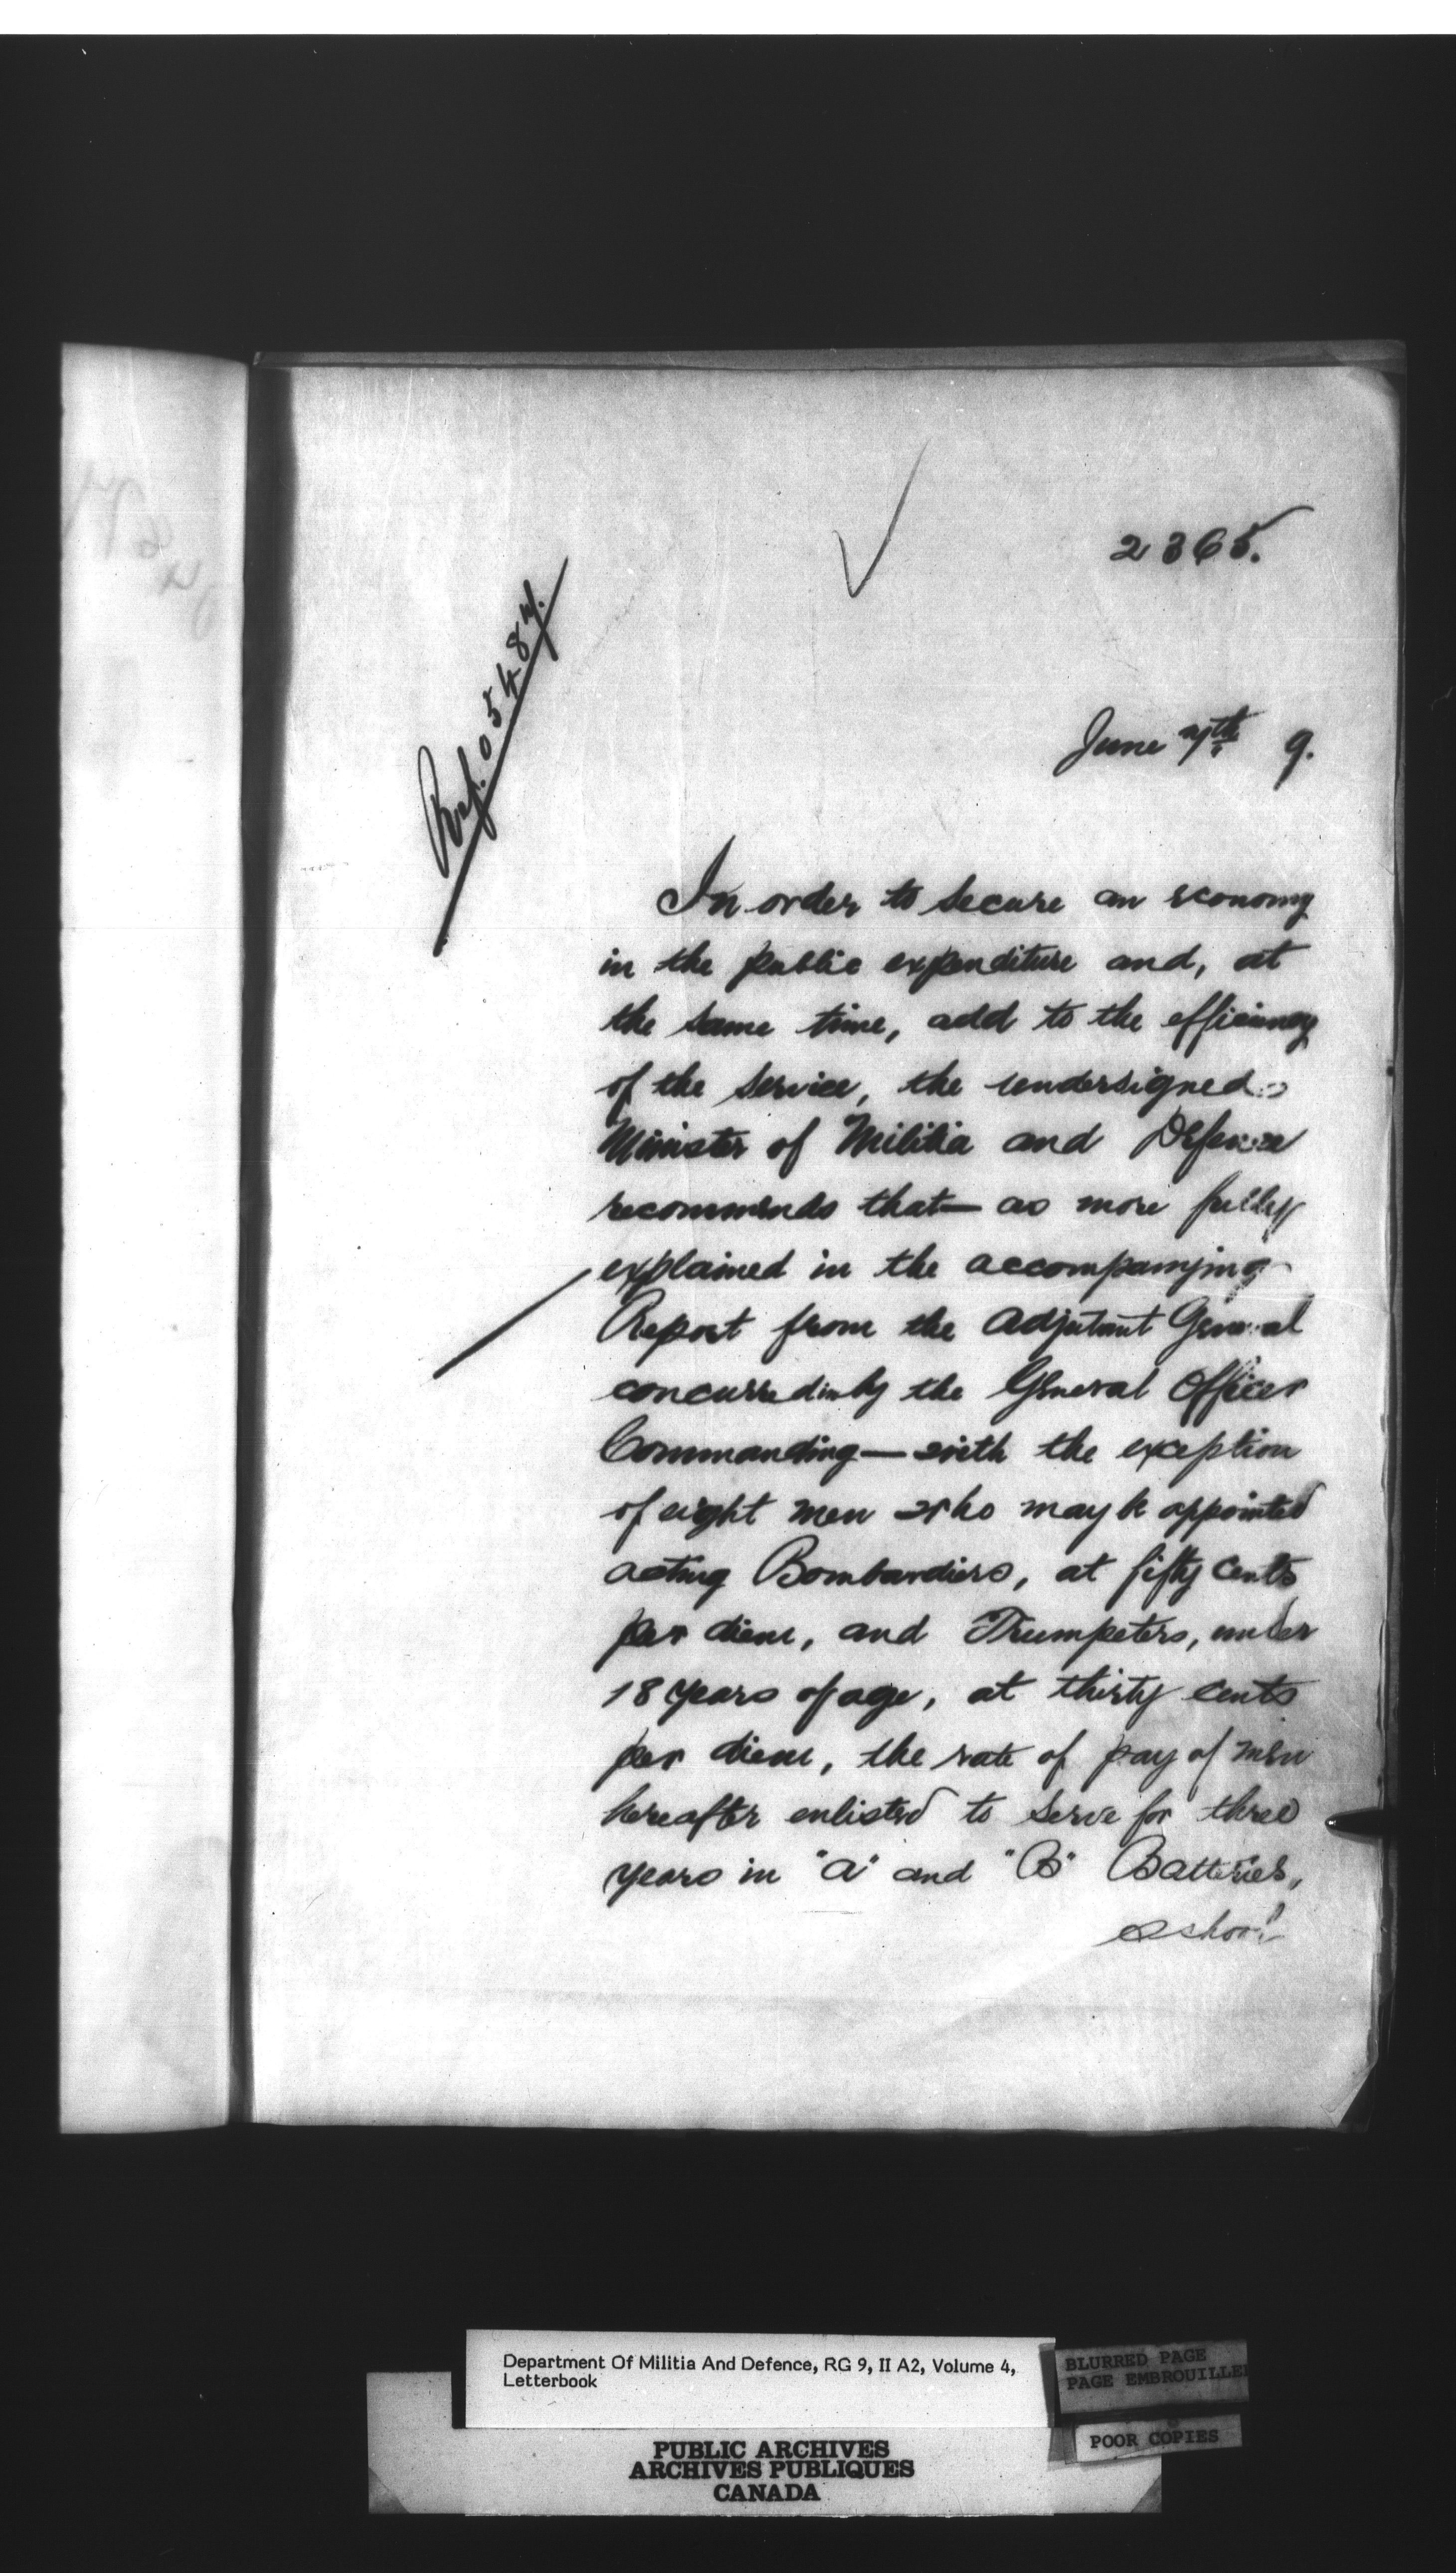 2365.
Ref. 05484.
June 7th 9.
In order to secure an economy
in the public expenditure and, at
the same time, add to the efficiency
of the service, the undersigned
Minister of Militia and Defence
recommends that — as more fully
explained in the accompanying
Report from the Adjutant General
concurred in by the General Officer
Commanding — with the exception
of eight men who may be appointed
acting Bombardiers, at fifty cents
per diem, and Trumpeters, under
18 years of age, at thirty cents
per diem, the rate of pay of men
hereafter enlisted to serve for three
years in "A" and "B" Batteries,
School
Department Of Militia And Defence, RG 9, II A2, Volume 4,
Letterbook
BLURRED PAGE
PAGE EMBROUILLE
POOR COPIES
PUBLIC ARCHIVES
ARCHIVES PUBLIQUES
CANADA